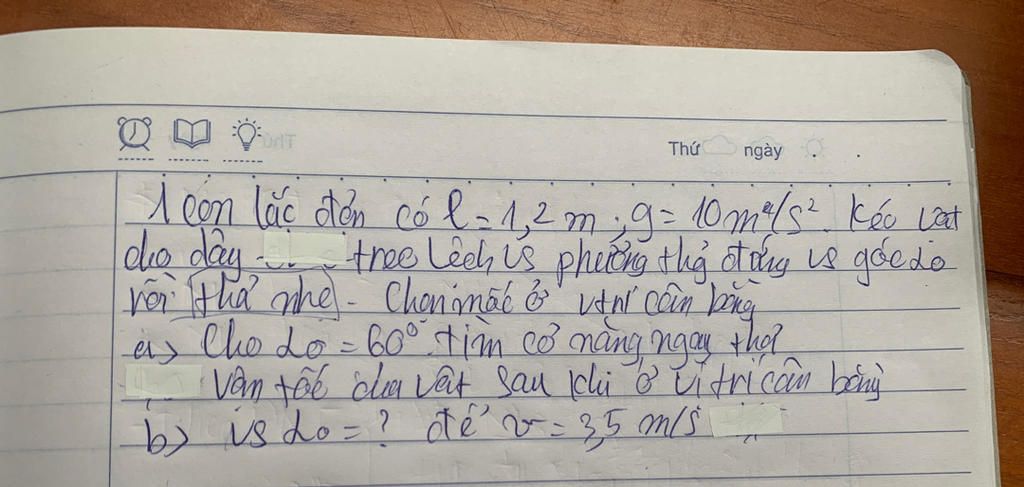 Thứ ngày . .
1 con lắc đơn có l = 1,2 m ; g = 10 m/s². Kéo vật
cho dây treo lệch vs phương thẳng đứng vs góc α0
rồi thả nhẹ - Chọn mốc ở vtrí cân bằng
a> Cho α0 = 60° tìm cơ năng ngay thả
vận tốc của vật sau khi ở vị trí cân bằng
b> vs α0 = ? để v = 3,5 m/s